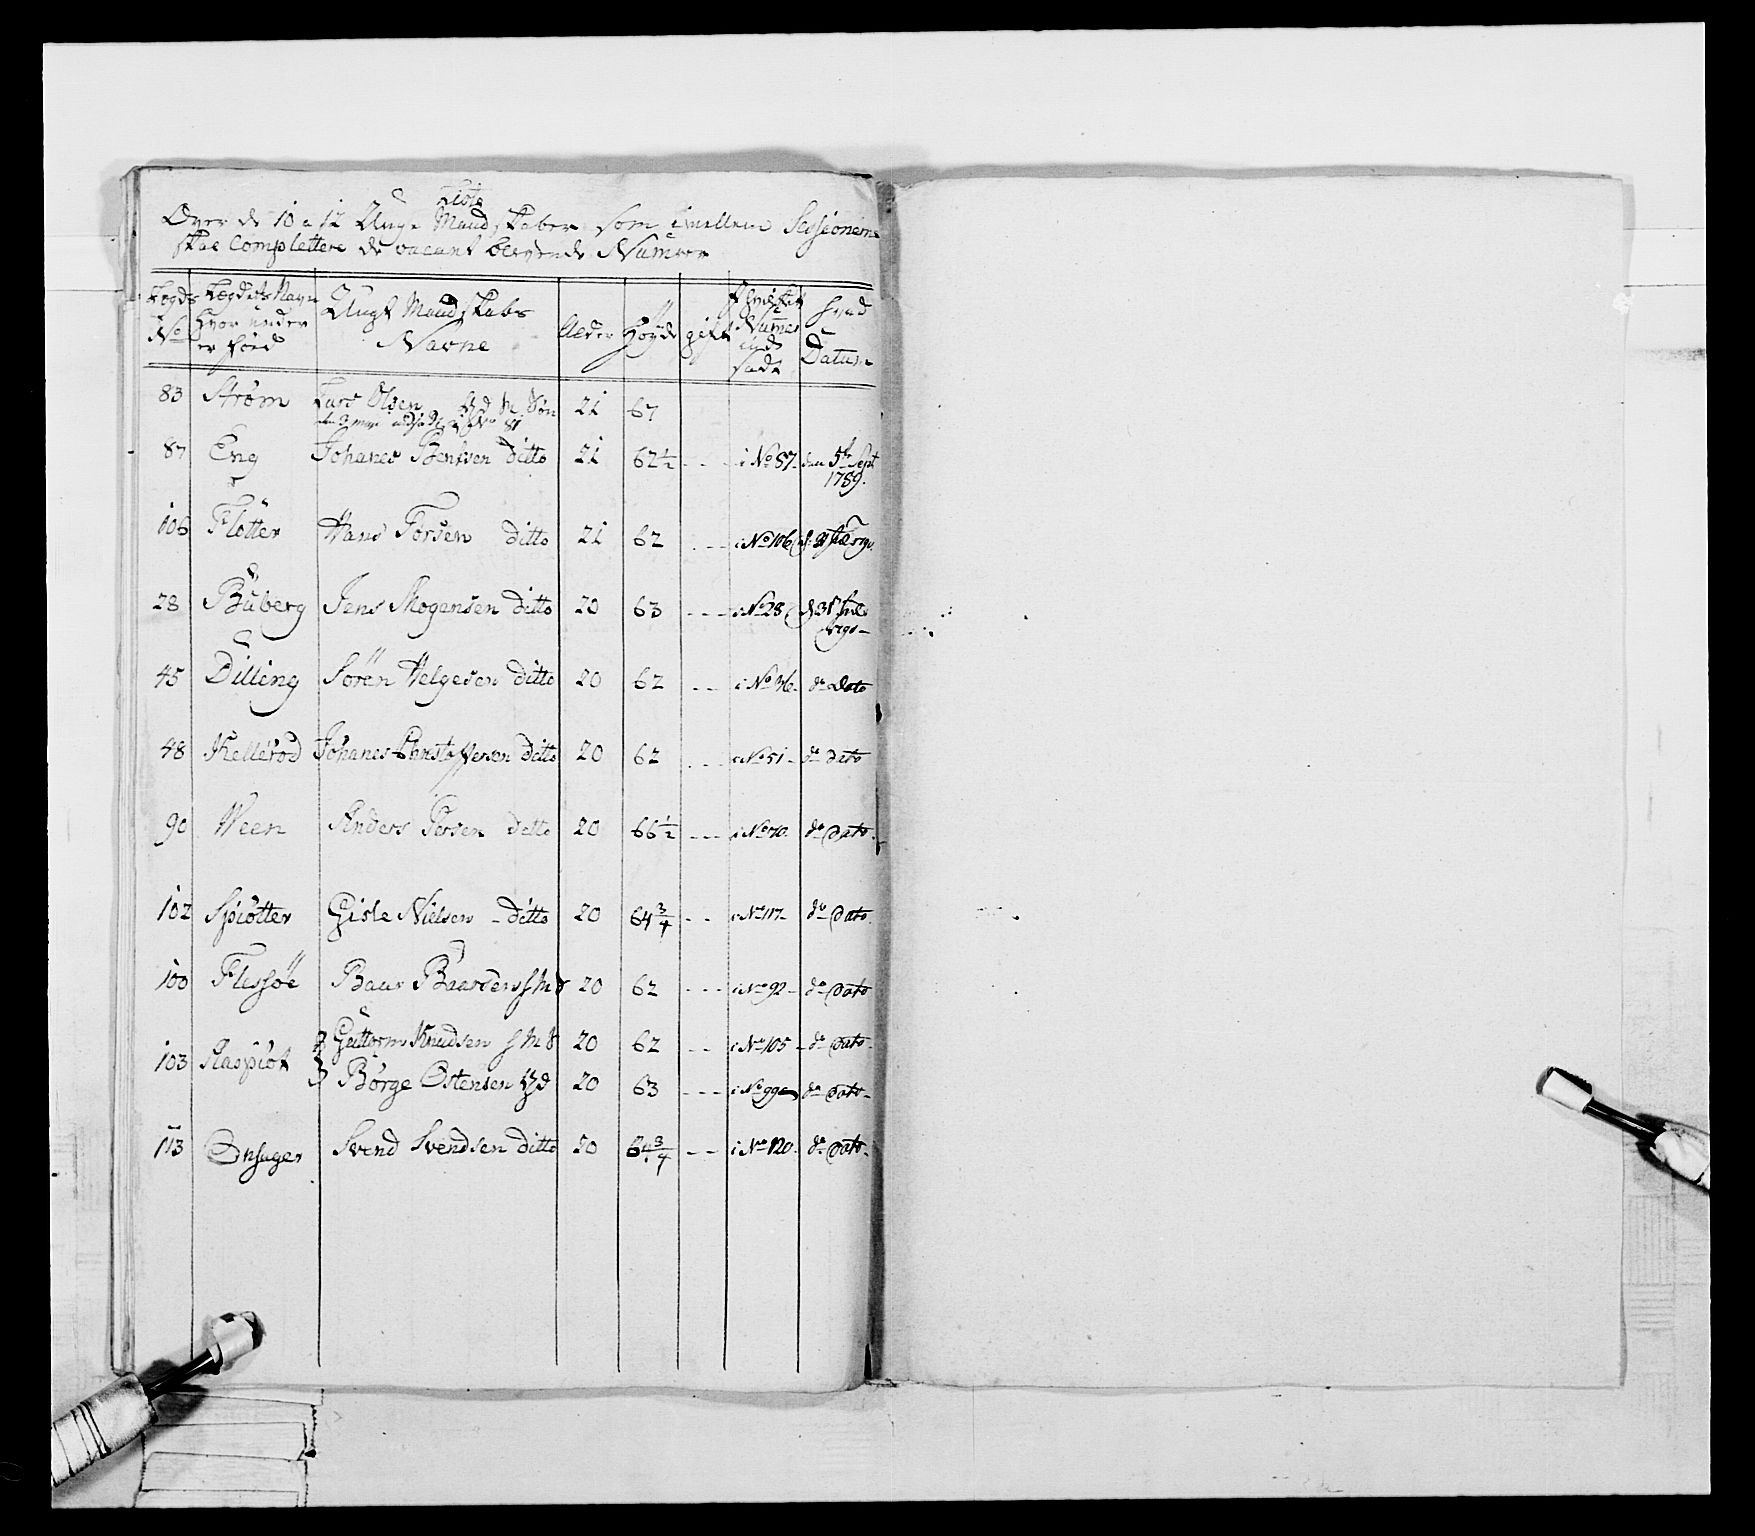 Liste
Over de 10 a 12 Unge Mandskaber som imellem Sessionerne
skal Complettere de vacant blevende Numere
Lægds No | Lægdets Navn hvor under er föed | Ungt Mandskabs Navne | Alder | Höyde | gift | Numer inds sadt | hvad Datum
83 Ström Lars Olsen Sön 21 67
87 Eng Johanes Bentsen ditto 21 62½ - - - i No 87 - den 5te Sept
1789.
106 Flotter Hans Torsen ditto 21 62 - - - i No 106
28 Buberg Jens Mogensen ditto 20 63 - - - i No 28
45 Dilling Sören Helgesen ditto 20 62 - - i No 46 - do Dato
48 Kelleröd Johanes Christophersen ditto 20 62 - - - i No 51 - do dato
90 Ween Anders Persen ditto 20 66½ - - - i No 70. do Dato.
102 Spiötter Gisle Nielsen - ditto 20 64¾ - - i No 117 - do Dato.
100 Flesjöe Baar Baardsen 20 62 - - - i No 92 - do Dato
103 Raspiöt Guttorm Knudsen 20 62 - - i No 105 - do Dato.
Börge Ostensen 20 63 - - - i No 99 do Dato -
113 Onsager Svend Svendsen ditto 20 64¾ - - i No 120. do Dato.